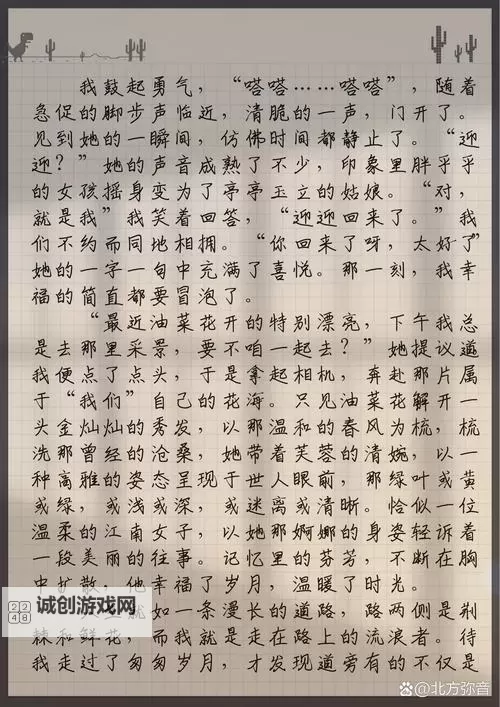 我鼓起勇气，“嗒嗒……嗒嗒”，随着
急促的脚步声临近，清脆的一声，门开了。
见到她的一瞬间，仿佛时间都静止了。“迎
迎？”她的声音成熟了不少，印象里胖乎乎
的女孩摇身变为了亭亭玉立的姑娘。“对，
就是我”我笑着回答，“迎迎回来了。”我
们不约而同地相拥。“你回来了呀，太好了”
她的一字一句中充满了喜悦。那一刻，我幸
福的简直都要冒泡了。
“最近油菜花开的特别漂亮，下午我总
是去那里采景，要不咱一起去？”她提议道
我便点了点头，于是拿起相机，奔赴那片属
于“我们”自己的花海。只见油菜花解开一
头金灿灿的秀发，以那温和的春风为梳，梳
洗那曾经的沧桑，她带着芙蓉的清婉，以一
种高雅的姿态呈现于世人眼前，那绿叶或黄
或绿，或浅或深，或迷离或清晰。恰似一位
温柔的江南女子，以她那婀娜的身姿轻诉着
一段美丽的往事。记忆里的芬芳，不断在胸
中扩散，他幸福了岁月，温暖了时光。
就如一条漫长的道路，路两侧是荆
棘和鲜花，而我就是走在路上的流浪者。待
我走过了匆匆岁月，才发现道旁有的不仅是
2248
诚创游戏网
@北方弥音